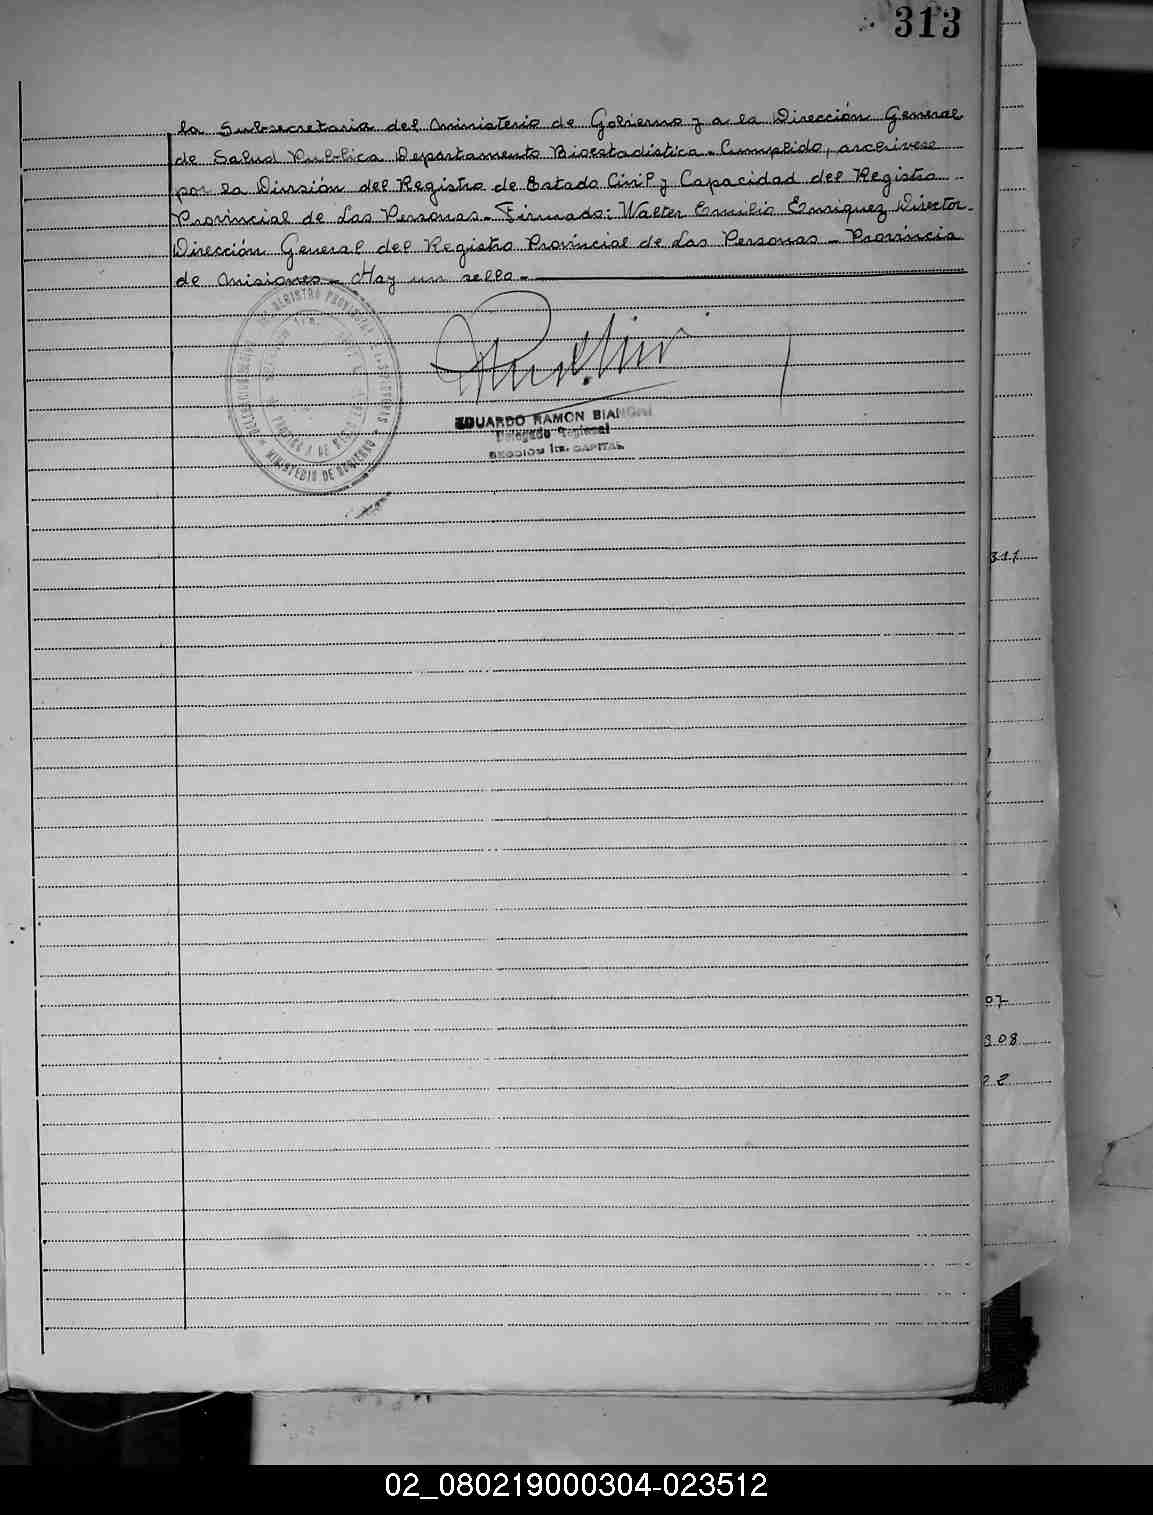 313
la Subsecretaria del Ministerio de Gobierno y a la Dirección General
de Salud Publica Departamento Bioestadística. Cumplido, archivese
por la División del Registro de Estado Civil y Capacidad del Registro
Provincial de Las Personas. Firmado: Walter Emilio Enriquez Director.
Dirección General del Registro Provincial de Las Personas - Provincia
de Misiones - Hay un sello -
REGISTRO PROVINCIAL
MINISTERIO DE GOBIERNO
EDUARDO RAMON BIANCHI
Delegado Regional
SECCION 1ra. CAPITAL
311
07
308
02_080219000304-023512